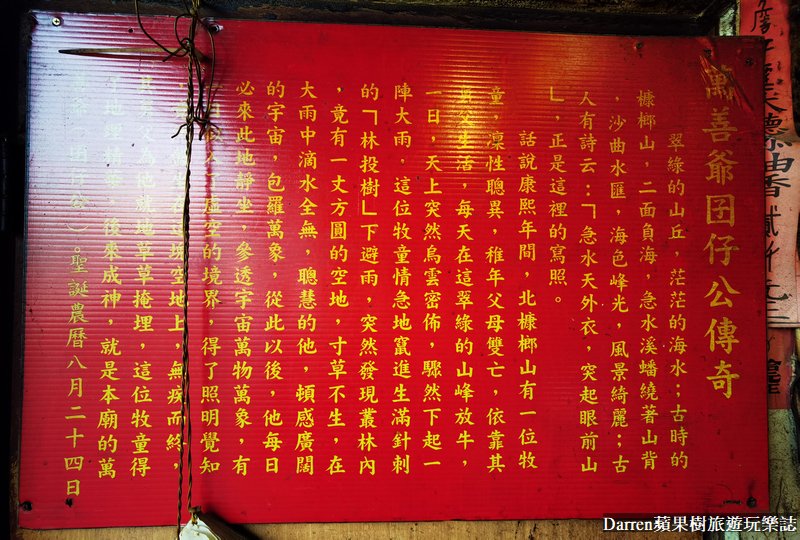 萬善爺囝仔公傳奇
翠綠的山丘，茫茫的海水；古時的
槺榔山，二面負海，急水溪蟠繞著山背
，沙曲水匯，海色峰光，風景綺麗；古
人有詩云：「急水天外衣，突起眼前山
」，正是這裡的寫照。
話說康熙年間，北槺榔山有一位牧
童，凜性聰異，稚年父母雙亡，依靠其
父生活，每天在這翠綠的山峰放牛，
一日，天上突然烏雲密佈，驟然下起一
陣大雨，這位牧童情急地竄進生滿針刺
的「林投樹」下避雨，突然發現叢林內
，竟有一丈方圓的空地，寸草不生，在
大雨中滴水全無，聰慧的他，頓感廣闊
的宇宙，包羅萬象，從此以後，他每日
必來此地靜坐，參透宇宙萬物萬象，有
一日
虛空的境界，得了照明覺知
坐在這塊空地上，無疾而終，
父為他就地草草掩埋，這位牧童得
地理精華，後來成神，就是本廟的萬
善爺（囝仔公）。聖誕農曆八月二十四日
德油香貳仟元
Darren蘋果樹旅遊玩樂誌